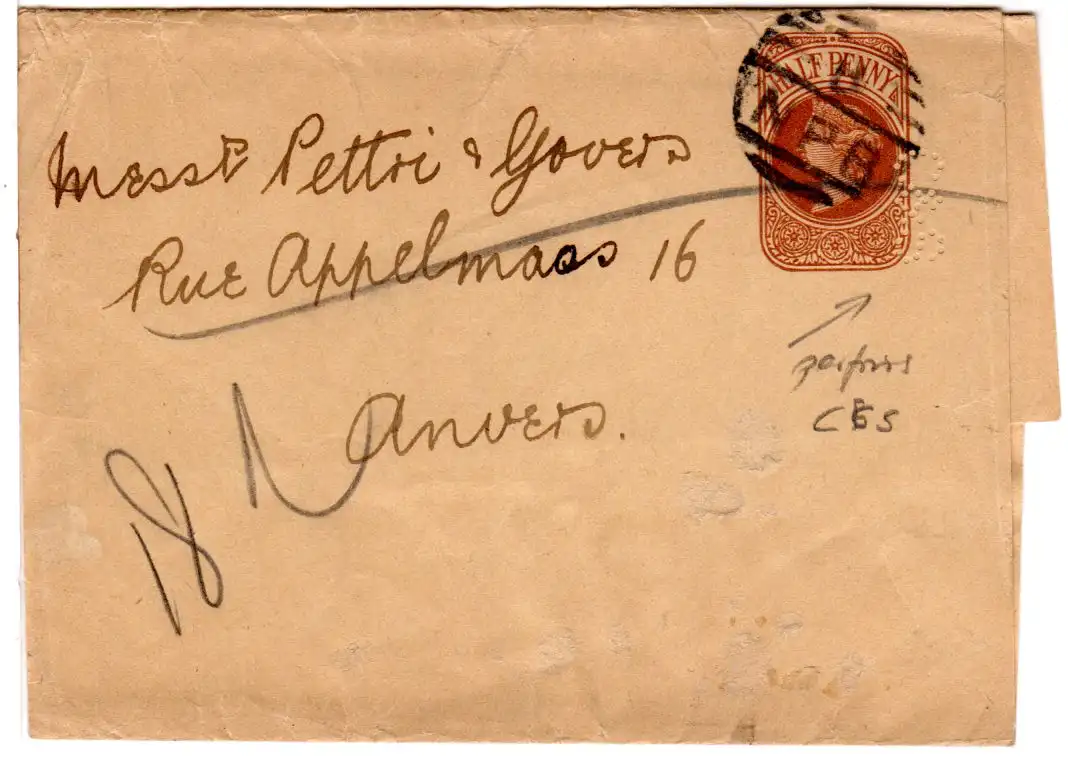 HALF PENNY
Messrs Pettri & Govers
Rue Appelmaos 16
Anvers.
perfins
CES
18